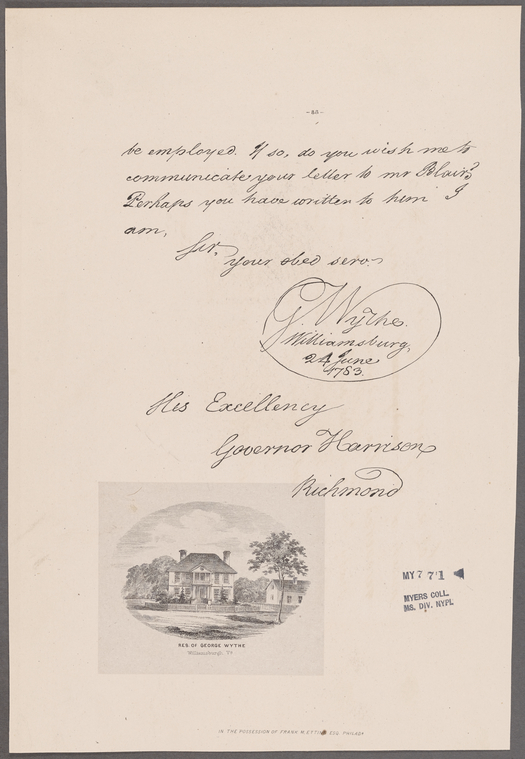 -83-
be employed. If so, do you wish me to
communicate your letter to mr Blair?
Perhaps you have written to him I
am,
Sir,
your obed serv.
G. Wythe.
Williamsburg,
24 June
1783.
His Excellency
Governor Harrison,
Richmond
RES. OF GEORGE WYTHE
Williamsburgh, Va
MY 7 71
MYERS COLL.
MS. DIV. NYPL
IN THE POSSESSION OF FRANK M. ETTING ESQ. PHILADA